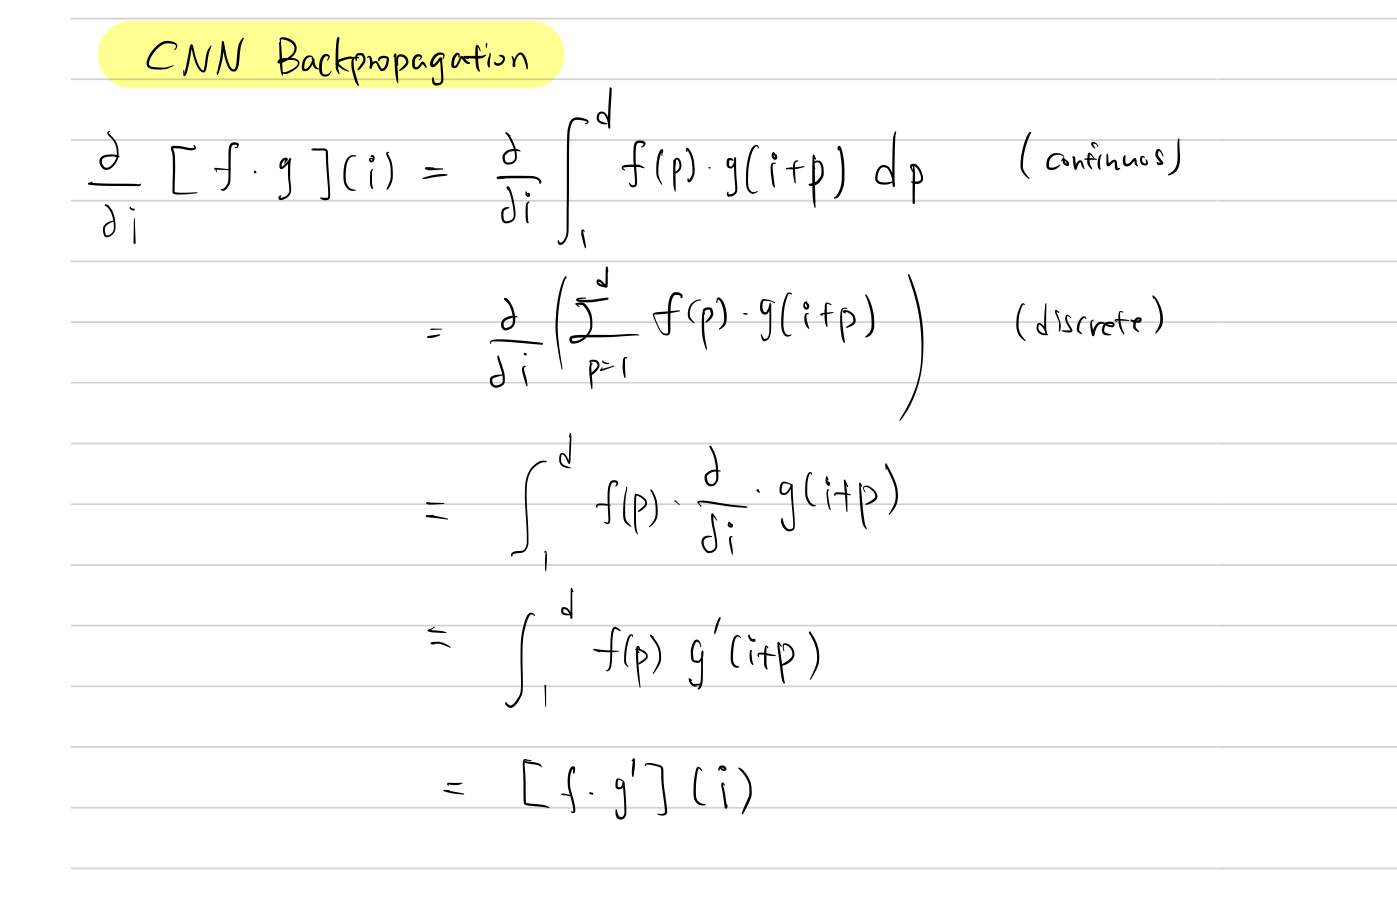 CNN Backpropagation
∂/∂i [f·g](i) = ∂/∂i ∫₁ᵈ f(p)·g(i+p) dp (continuos)
= ∂/∂i (∑_{p=1}^{d} f(p)·g(i+p)) (discrete)
= ∫₁ᵈ f(p)·∂/∂i·g(i+p)
= ∫₁ᵈ f(p) g'(i+p)
= [f·g'](i)